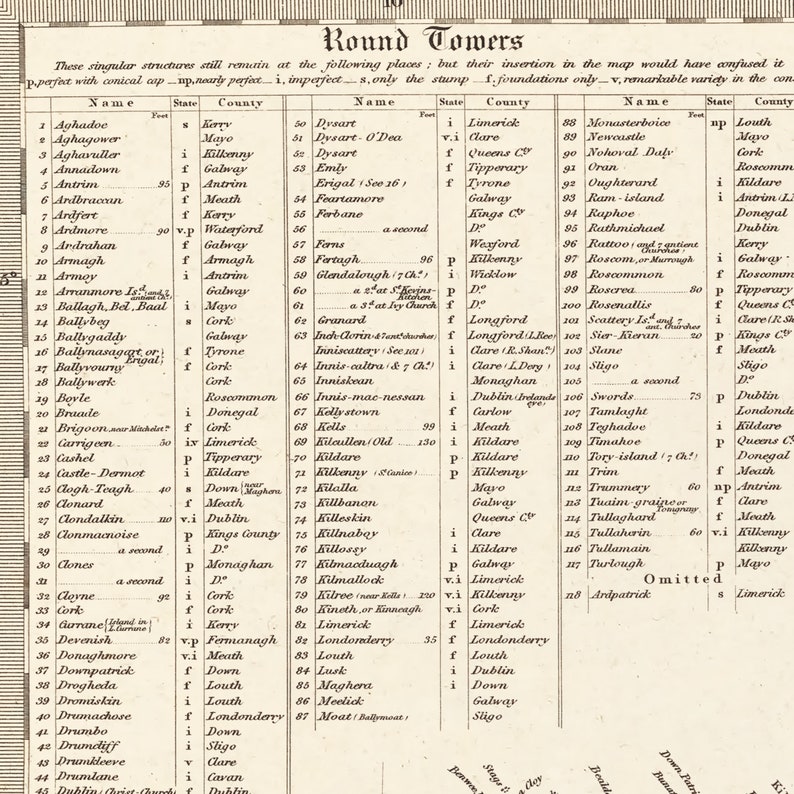 10
Round Towers
These singular structures still remain at the following places; but their insertion in the map would have confused it
p, perfect with conical cap _ np, nearly perfect _ i, imperfect _ s, only the stump _ f, foundations only _ v, remarkable variety in the con
Name State County
Feet
1 Aghadoe s Kerry
2 Aghagower Mayo
3 Aghaviller i Kilkenny
4 Annadown f Galway
5 Antrim 95 p Antrim
6 Ardbraccan f Meath
7 Ardfert f Kerry
8 Ardmore 90 v.p Waterford
9 Ardrahan f Galway
10 Armagh f Armagh
11 Armoy i Antrim
12 Arranmore Is.d (and 7 antient Ch.s) Galway
13 Ballagh, Bel, Baal i Mayo
14 Ballybeg s Cork
15 Ballygaddy Galway
16 Ballynasagart, or Erigal f Tyrone
17 Ballyvourny f Cork
18 Ballywerk Cork
19 Boyle Roscommon
20 Braade i Donegal
21 Brigoon, near Mitchelst.n f Cork
22 Carrigeen 50 iv Limerick
23 Cashel p Tipperary
24 Castle-Dermot i Kildare
25 Clogh-Teagh 40 s Down (near Maghera
26 Clonard f Meath
27 Clondalkin 110 v.i Dublin
28 Clonmacnoise p Kings County
29 a second i D.o
30 Clones p Monaghan
31 a second i D.o
32 Cloyne 92 i Cork
33 Cork f Cork
34 Currane (Island in L. Currane) i Kerry
35 Devenish 82 v.p Fermanagh
36 Donaghmore v.i Meath
37 Downpatrick f Down
38 Drogheda f Louth
39 Dromiskin i Louth
40 Drumachose f Londonderry
41 Drumbo i Down
42 Drumcliff i Sligo
43 Drumkleeve v Clare
44 Drumlane i Cavan
45 Dublin (Christ-Church) f Dublin
Name State County
Feet
50 Dysart i Limerick
51 Dysart-O'Dea v.i Clare
52 Dysart f Queens C.ty
53 Emly f Tipperary
Erigal (See 16) f Tyrone
54 Feartamore Galway
55 Ferbane Kings C.ty
56 a second D.o
57 Ferns Wexford
58 Fertagh 96 p Kilkenny
59 Glendalough (7 Ch.s) i Wicklow
60 a 2.d at S.t Kevins-Kitchen p D.o
61 a 3.d at Ivy Church f D.o
62 Granard f Longford
63 Inch-Clorin (& 7 ant. churches) f Longford (L.Ree)
Inniscattery (See 101) i Clare (R.Shan.n)
64 Innis-caltra (& 7 Ch.s) i Clare (L.Derg)
65 Inniskean Monaghan
66 Innis-mac-nessan i Dublin (Irelands eye)
67 Kellystown f Carlow
68 Kells 99 i Meath
69 Kilcullen (Old 130 i Kildare
70 Kildare p Kildare
71 Kilkenny (S.t Canice) p Kilkenny
72 Kilalla Mayo
73 Killbanon Galway
74 Killeskin Queens C.ty
75 Killnaboy i Clare
76 Killossy i Kildare
77 Kilmacduagh p Galway
78 Kilmallock v.i Limerick
79 Kilree (near Kells) 120 v.i Kilkenny
80 Kineth, or Kinneagh v.i Cork
81 Limerick f Limerick
82 Londonderry 35 f Londonderry
83 Louth f Louth
84 Lusk i Dublin
85 Maghera i Down
86 Meelick Galway
87 Moat (Ballymoat) Sligo
Name State County
Feet
88 Monasterboice np Louth
89 Newcastle Mayo
90 Nohoval Daly Cork
91 Oran Roscomm
92 Oughterard i Kildare
93 Ram-island i Antrim (L.
94 Raphoe Donegal
95 Rathmichael Dublin
96 Rattoo (and 7 antient Churches) Kerry
97 Roscom, or Murrough i Galway
98 Roscommon f Roscomm
99 Roscrea 80 p Tipperary
100 Rosenallis f Queens C
101 Scattery Is.d and 7 ant. Churches i Clare (R.Sh
102 Sier-Kieran 20 p Kings C.t
103 Slane f Meath
104 Sligo Sligo
105 a second D.o
106 Swords 73 p Dublin
107 Tamlaght Londonde
108 Teghadoe i Kildare
109 Timahoe p Queens C
110 Tory-island (7 Ch.s) Donegal
111 Trim f Meath
112 Trummery 60 np Antrim
113 Tuaim-graine or Tomgrany f Clare
114 Tullaghard f Meath
115 Tullaherin 60 v.i Kilkenny
116 Tullamain Kilkenny
117 Turlough p Mayo
Omitted
118 Ardpatrick s Limerick
Down Patri